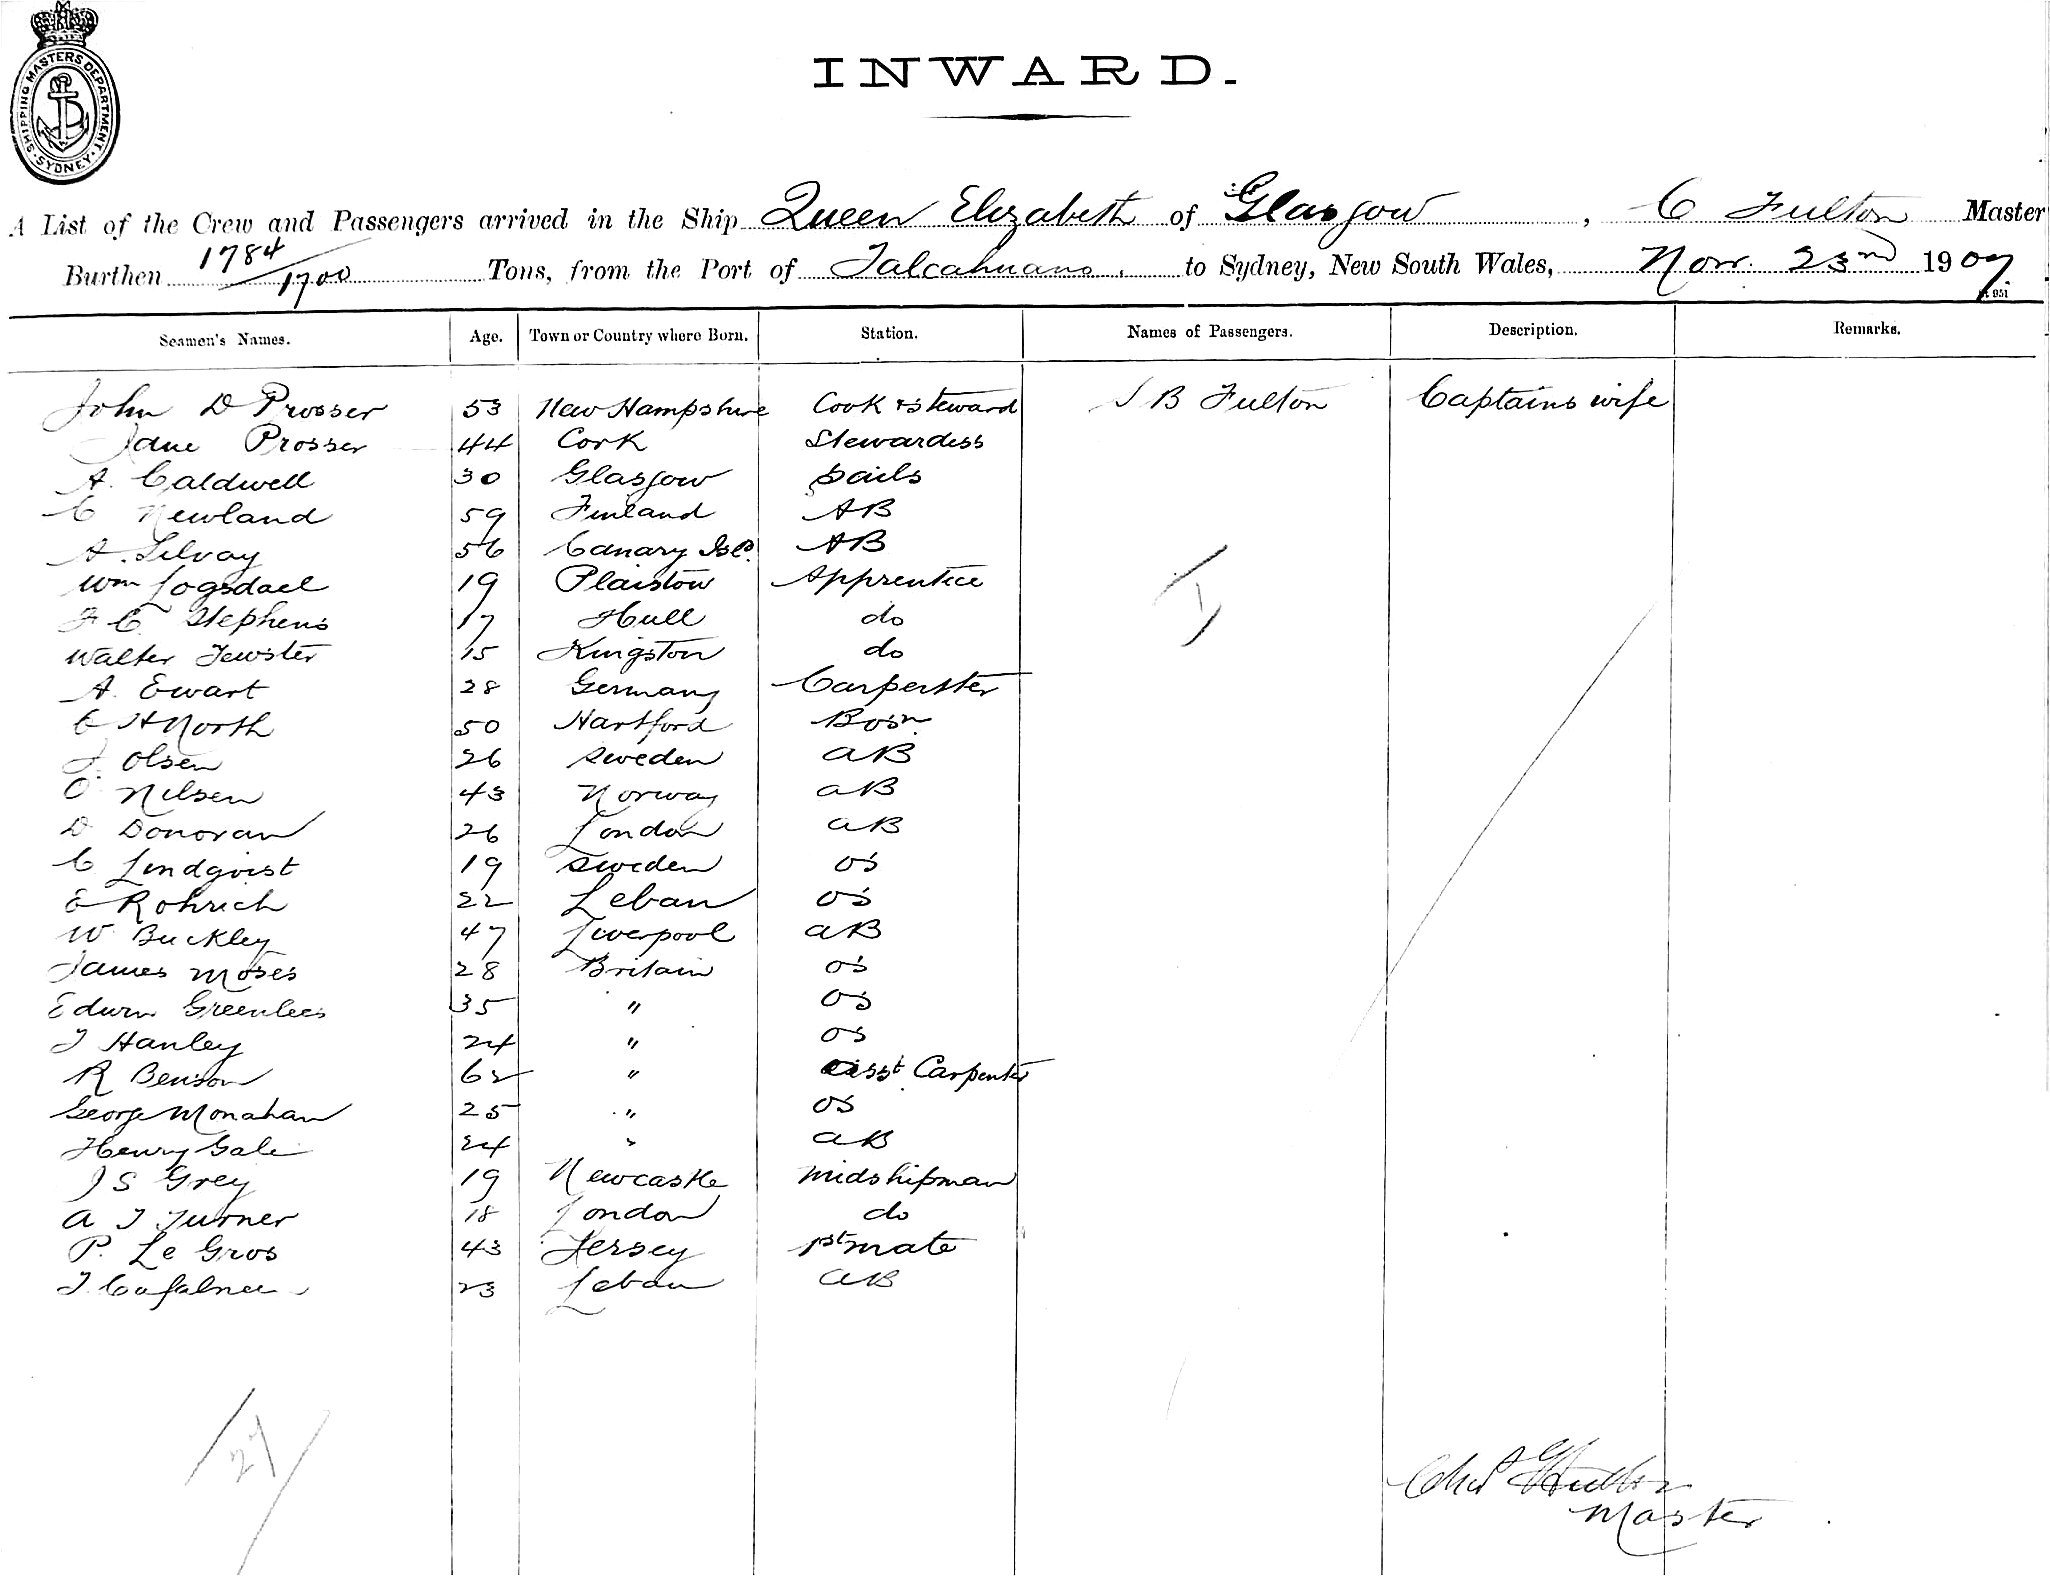 SHIPPING MASTERS DEPARTMENT
SYDNEY
INWARD.
A List of the Crew and Passengers arrived in the Ship Queen Elizabeth of Glasgow, C Fulton Master
Burthen 1784/1700 Tons, from the Port of Talcahuano, to Sydney, New South Wales, Novr. 23rd 1907
Seamen's Names. Age. Town or Country where Born. Station. Names of Passengers. Description. Remarks.
John D Prosser 53 New Hampshire Cook & Steward J B Fulton Captains wife
Jane Prosser 44 Cork Stewardess
A. Caldwell 30 Glasgow Sails
C Newland 59 Finland AB
A. Silvay 56 Canary Isls. AB
Wm Logsdael 19 Plaistow Apprentice
F C Stephens 17 Hull do
Walter Tewster 15 Kingston do
A. Ewart 28 Germany Carpenter
C H North 50 Hartford Bosn.
J. Olsen 26 Sweden AB
O Nilsen 43 Norway AB
D Donovan 26 London AB
C Lindqvist 19 Sweden OS
E Rohrich 22 Leban OS
W Buckley 47 Liverpool AB
James Moses 28 Britain OS
Edwin Greenlees 35 " OS
J Hanley 24 " OS
R Benson 62 " Asst Carpenter
George Monahan 25 " OS
Henry Gale 24 " AB
J S Grey 19 Newcastle Midshipman
A J Turner 18 London do
P. Le Gros 43 Jersey 1st Mate
J. 23 Leban AB
27
Chas Fulton
Master